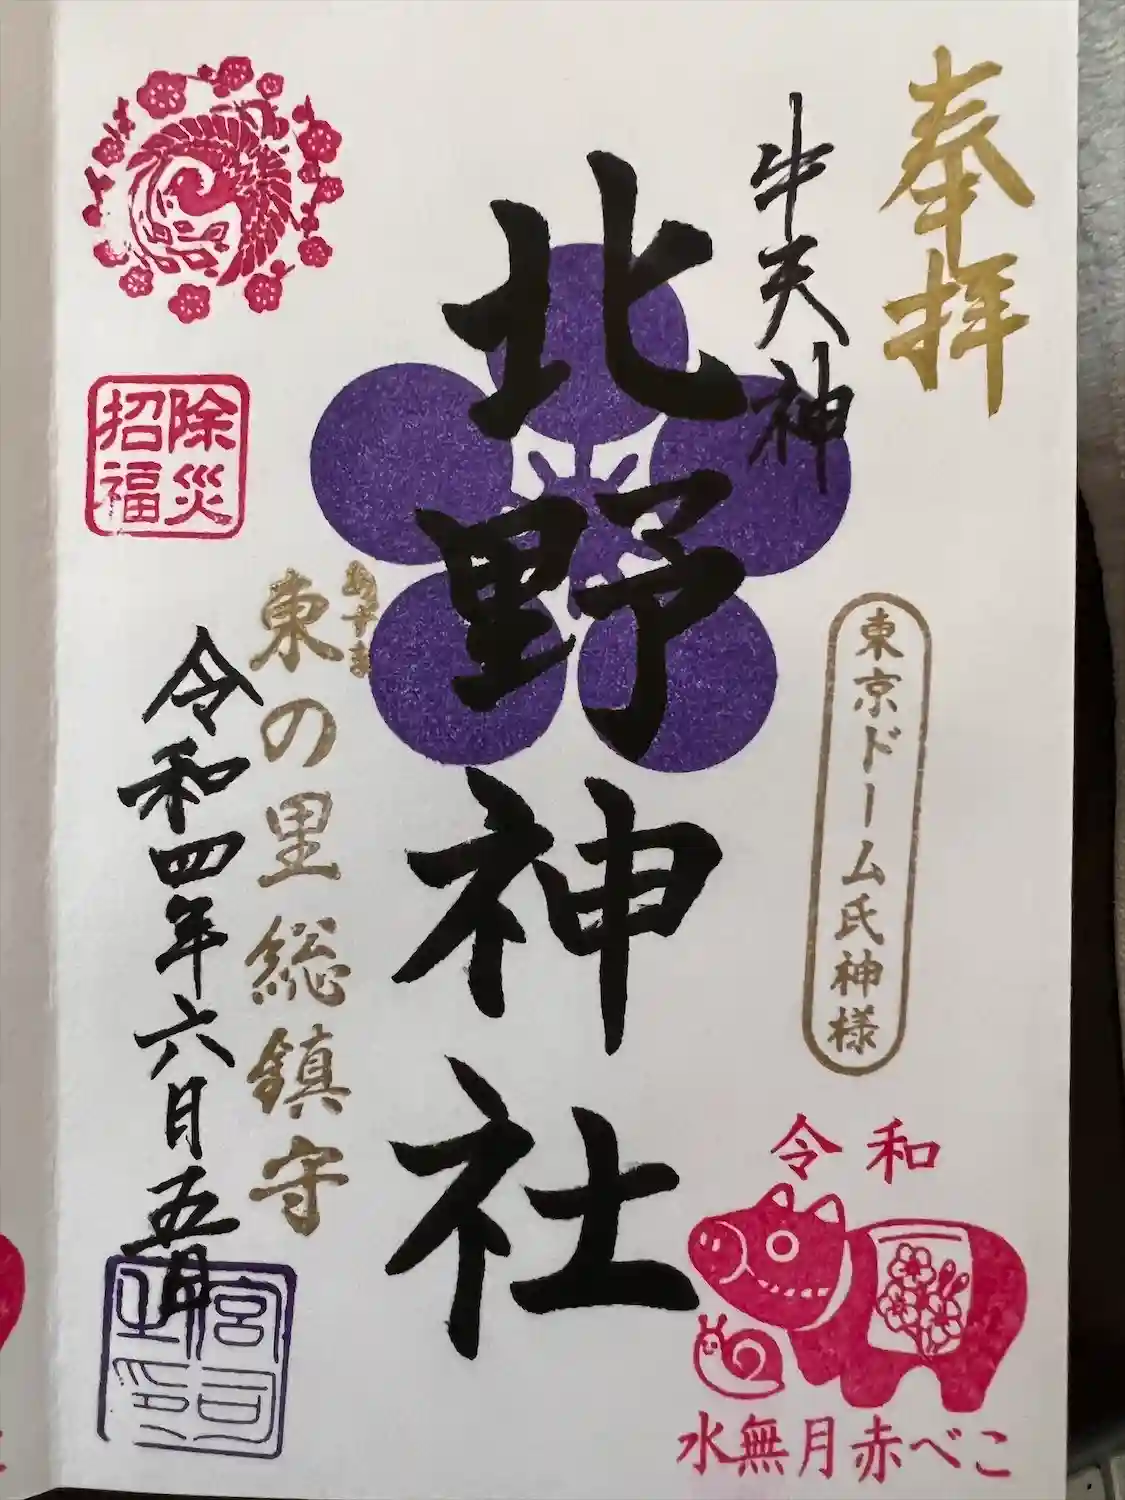 奉拝
牛天神
東京ドーム氏神様
令和
水無月赤べこ
北野神社
あずま
東の里総鎮守
除災
招福
令和四年六月五日
宮司
之印